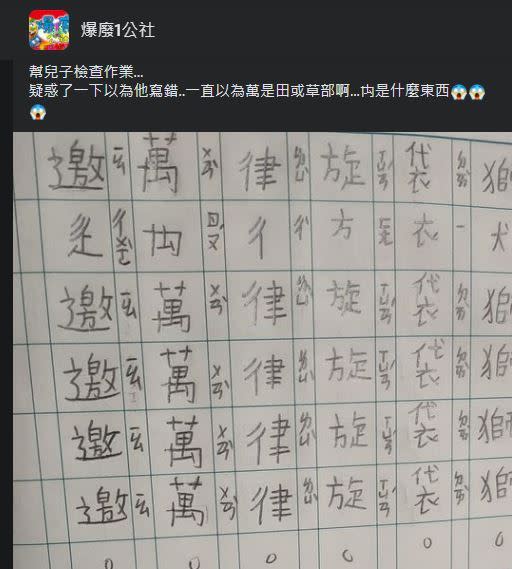 爆廢
爆廢1公社
幫兒子檢查作業...
疑惑了一下以為他寫錯..一直以為萬是田或草部啊...禸是什麼東西😱😱
😱
邀 ㄧㄠ 萬 ㄨㄢˋ 律 ㄌㄩˋ 旋 ㄒㄩㄢˊ 袋 ㄉㄞˋ 獅
辵 ㄔㄨㄛˋ 禸 ㄖㄡˊ 彳 ㄔˋ 方 ㄈㄤ 衣 ㄧ 犬
邀 ㄧㄠ 萬 ㄨㄢˋ 律 ㄌㄩˋ 旋 ㄒㄩㄢˊ 袋 ㄉㄞˋ 獅
邀 ㄧㄠ 萬 ㄨㄢˋ 律 ㄌㄩˋ 旋 ㄒㄩㄢˊ 袋 ㄉㄞˋ 獅
邀 ㄧㄠ 萬 ㄨㄢˋ 律 ㄌㄩˋ 旋 ㄒㄩㄢˊ 袋 ㄉㄞˋ 獅
邀 ㄧㄠ 萬 ㄨㄢˋ 律 ㄌㄩˋ 旋 ㄒㄩㄢˊ 袋 ㄉㄞˋ 獅
0 0 0 0 0 0